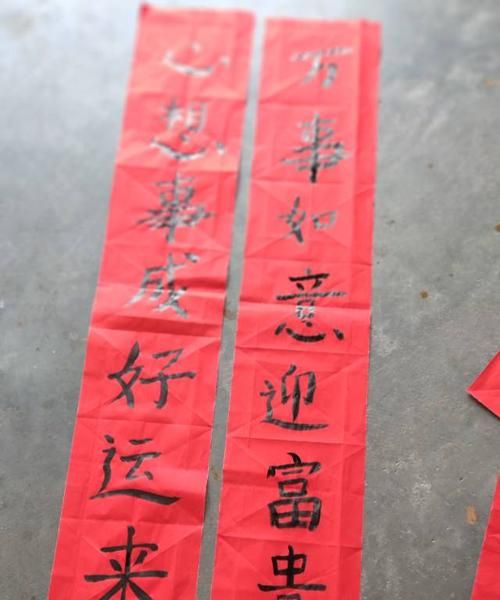 万事如意迎富贵
心想事成好运来